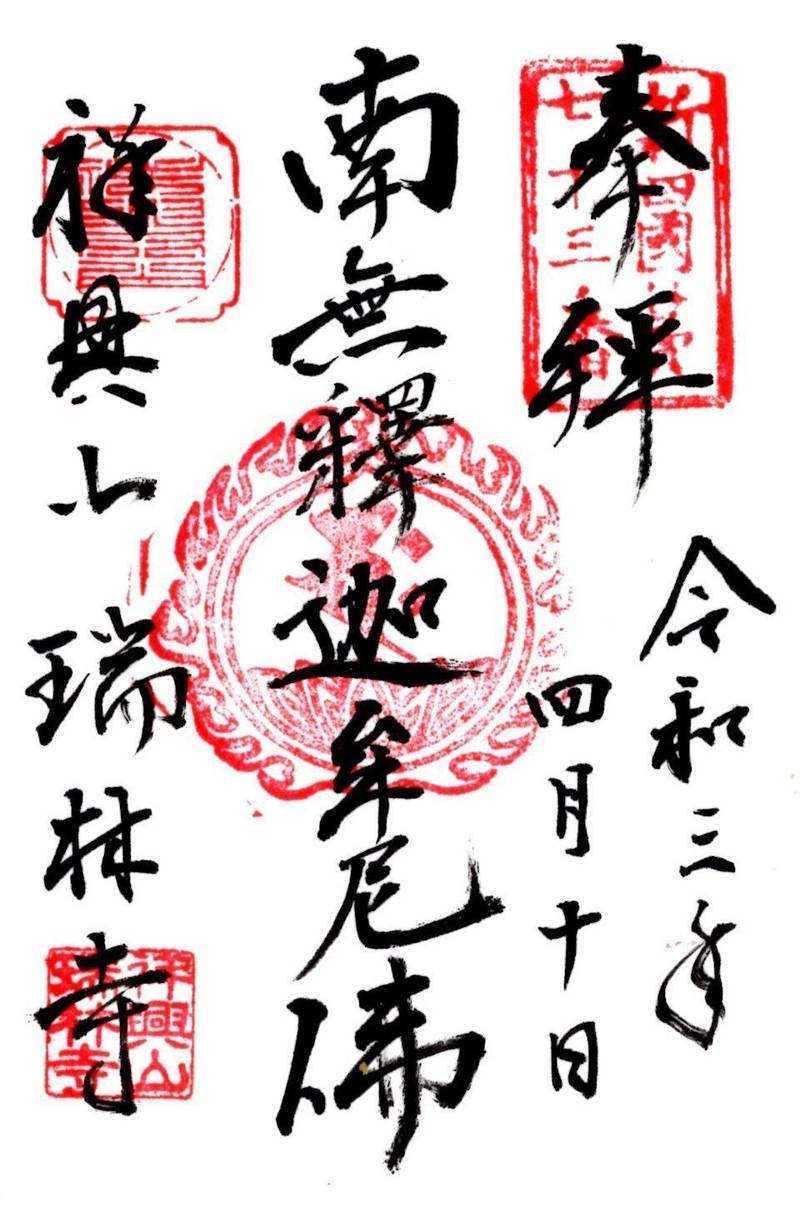 奉拝
令和三年
四月十日
南無釋迦牟尼佛
祥興山瑞林寺
新四國霊
七十三番
祥興山
瑞林寺